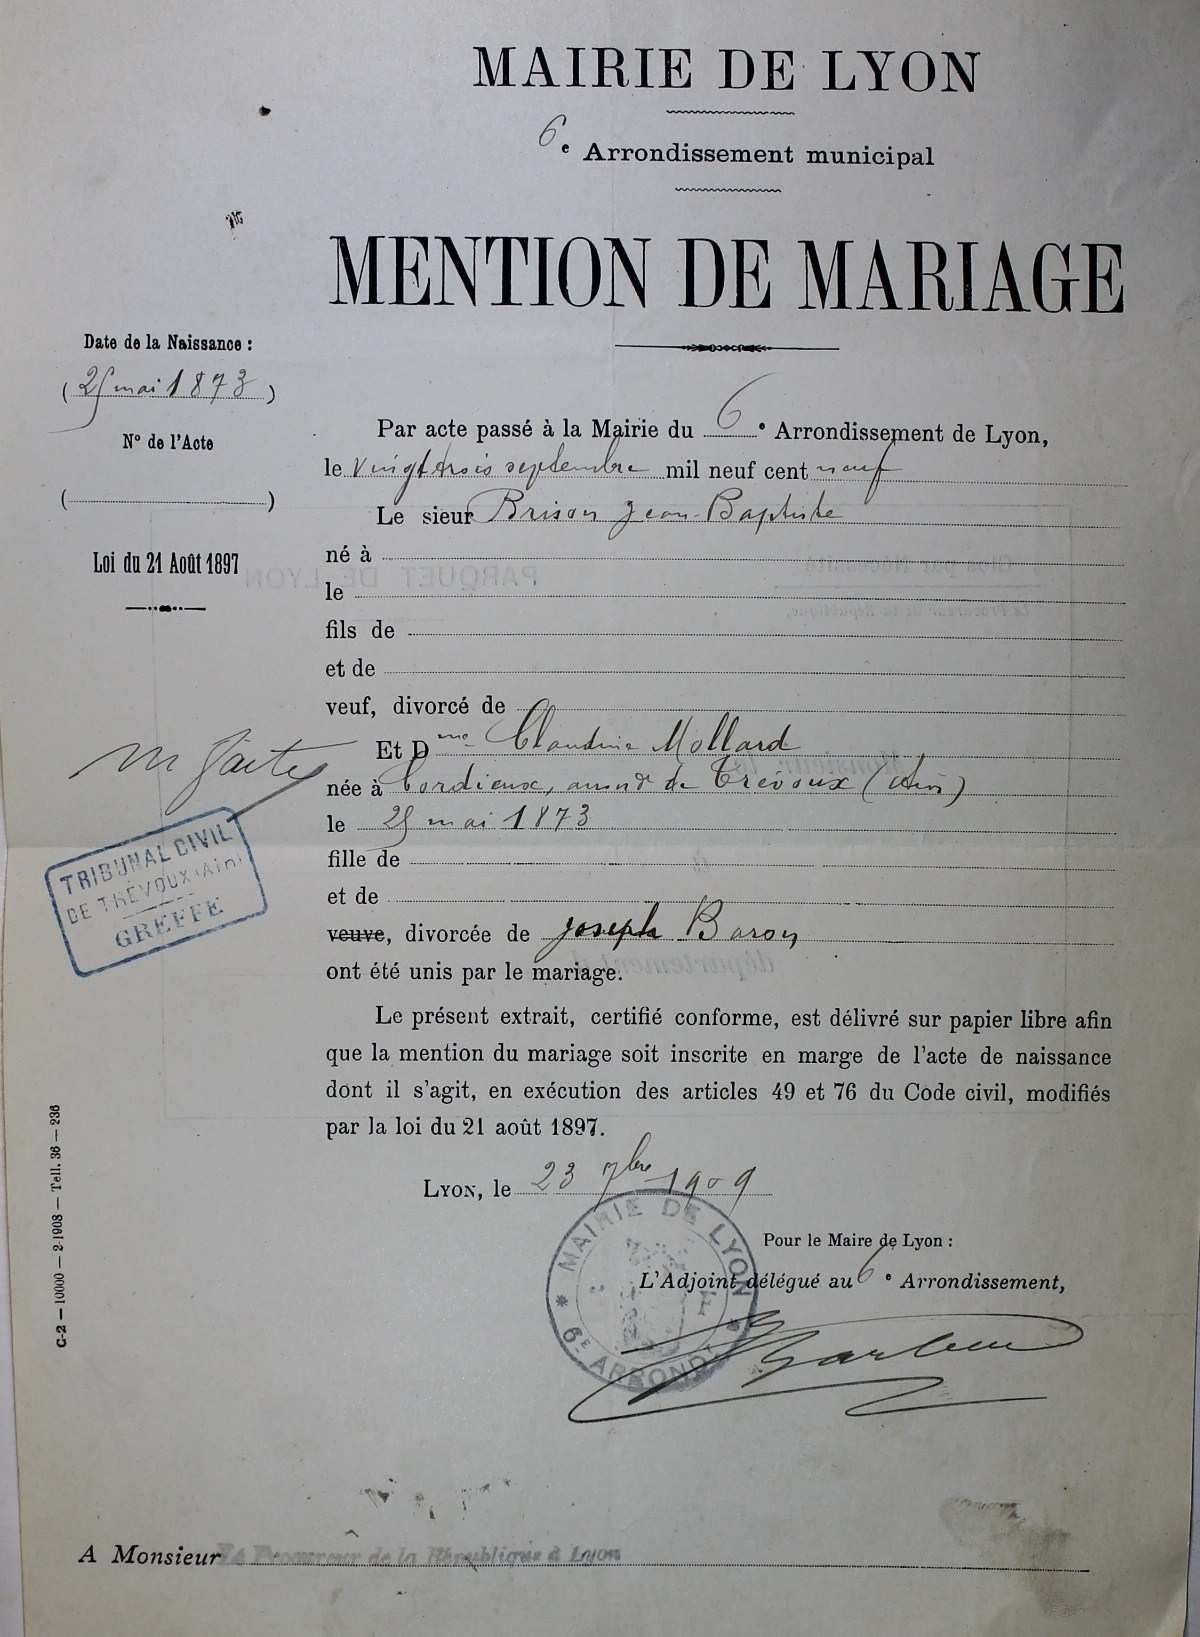 MAIRIE DE LYON
6e Arrondissement municipal
MENTION DE MARIAGE
Date de la Naissance :
(25 mai 1873)
N° de l'Acte
( )
Loi du 21 Août 1897
Par acte passé à la Mairie du 6e Arrondissement de Lyon,
le vingt trois septembre mil neuf cent neuf
Le sieur Brison Jean-Baptiste
né à
le
fils de
et de
veuf, divorcé de
Et Dme Claudine Mollard
née à Cordieux, arrondt de Trévoux (Ain)
le 25 mai 1873
fille de
et de
veuve, divorcée de Joseph Baron
ont été unis par le mariage.
m faite
TRIBUNAL CIVIL
DE TRÉVOUX (Ain)
GREFFE
Le présent extrait, certifié conforme, est délivré sur papier libre afin
que la mention du mariage soit inscrite en marge de l'acte de naissance
dont il s'agit, en exécution des articles 49 et 76 du Code civil, modifiés
par la loi du 21 août 1897.
LYON, le 23 7bre 1909
MAIRIE DE LYON
* 6E ARRONDT *
Pour le Maire de Lyon :
L'Adjoint délégué au 6e Arrondissement,
C-2 — 10000 — 2-1908 — Tell. 36 — 236
A Monsieur Le Procureur de la République à Lyon
PARQUET DE LYON
Clos par Nécessité
Le Procureur de la République,
Monsieur le
à
département d